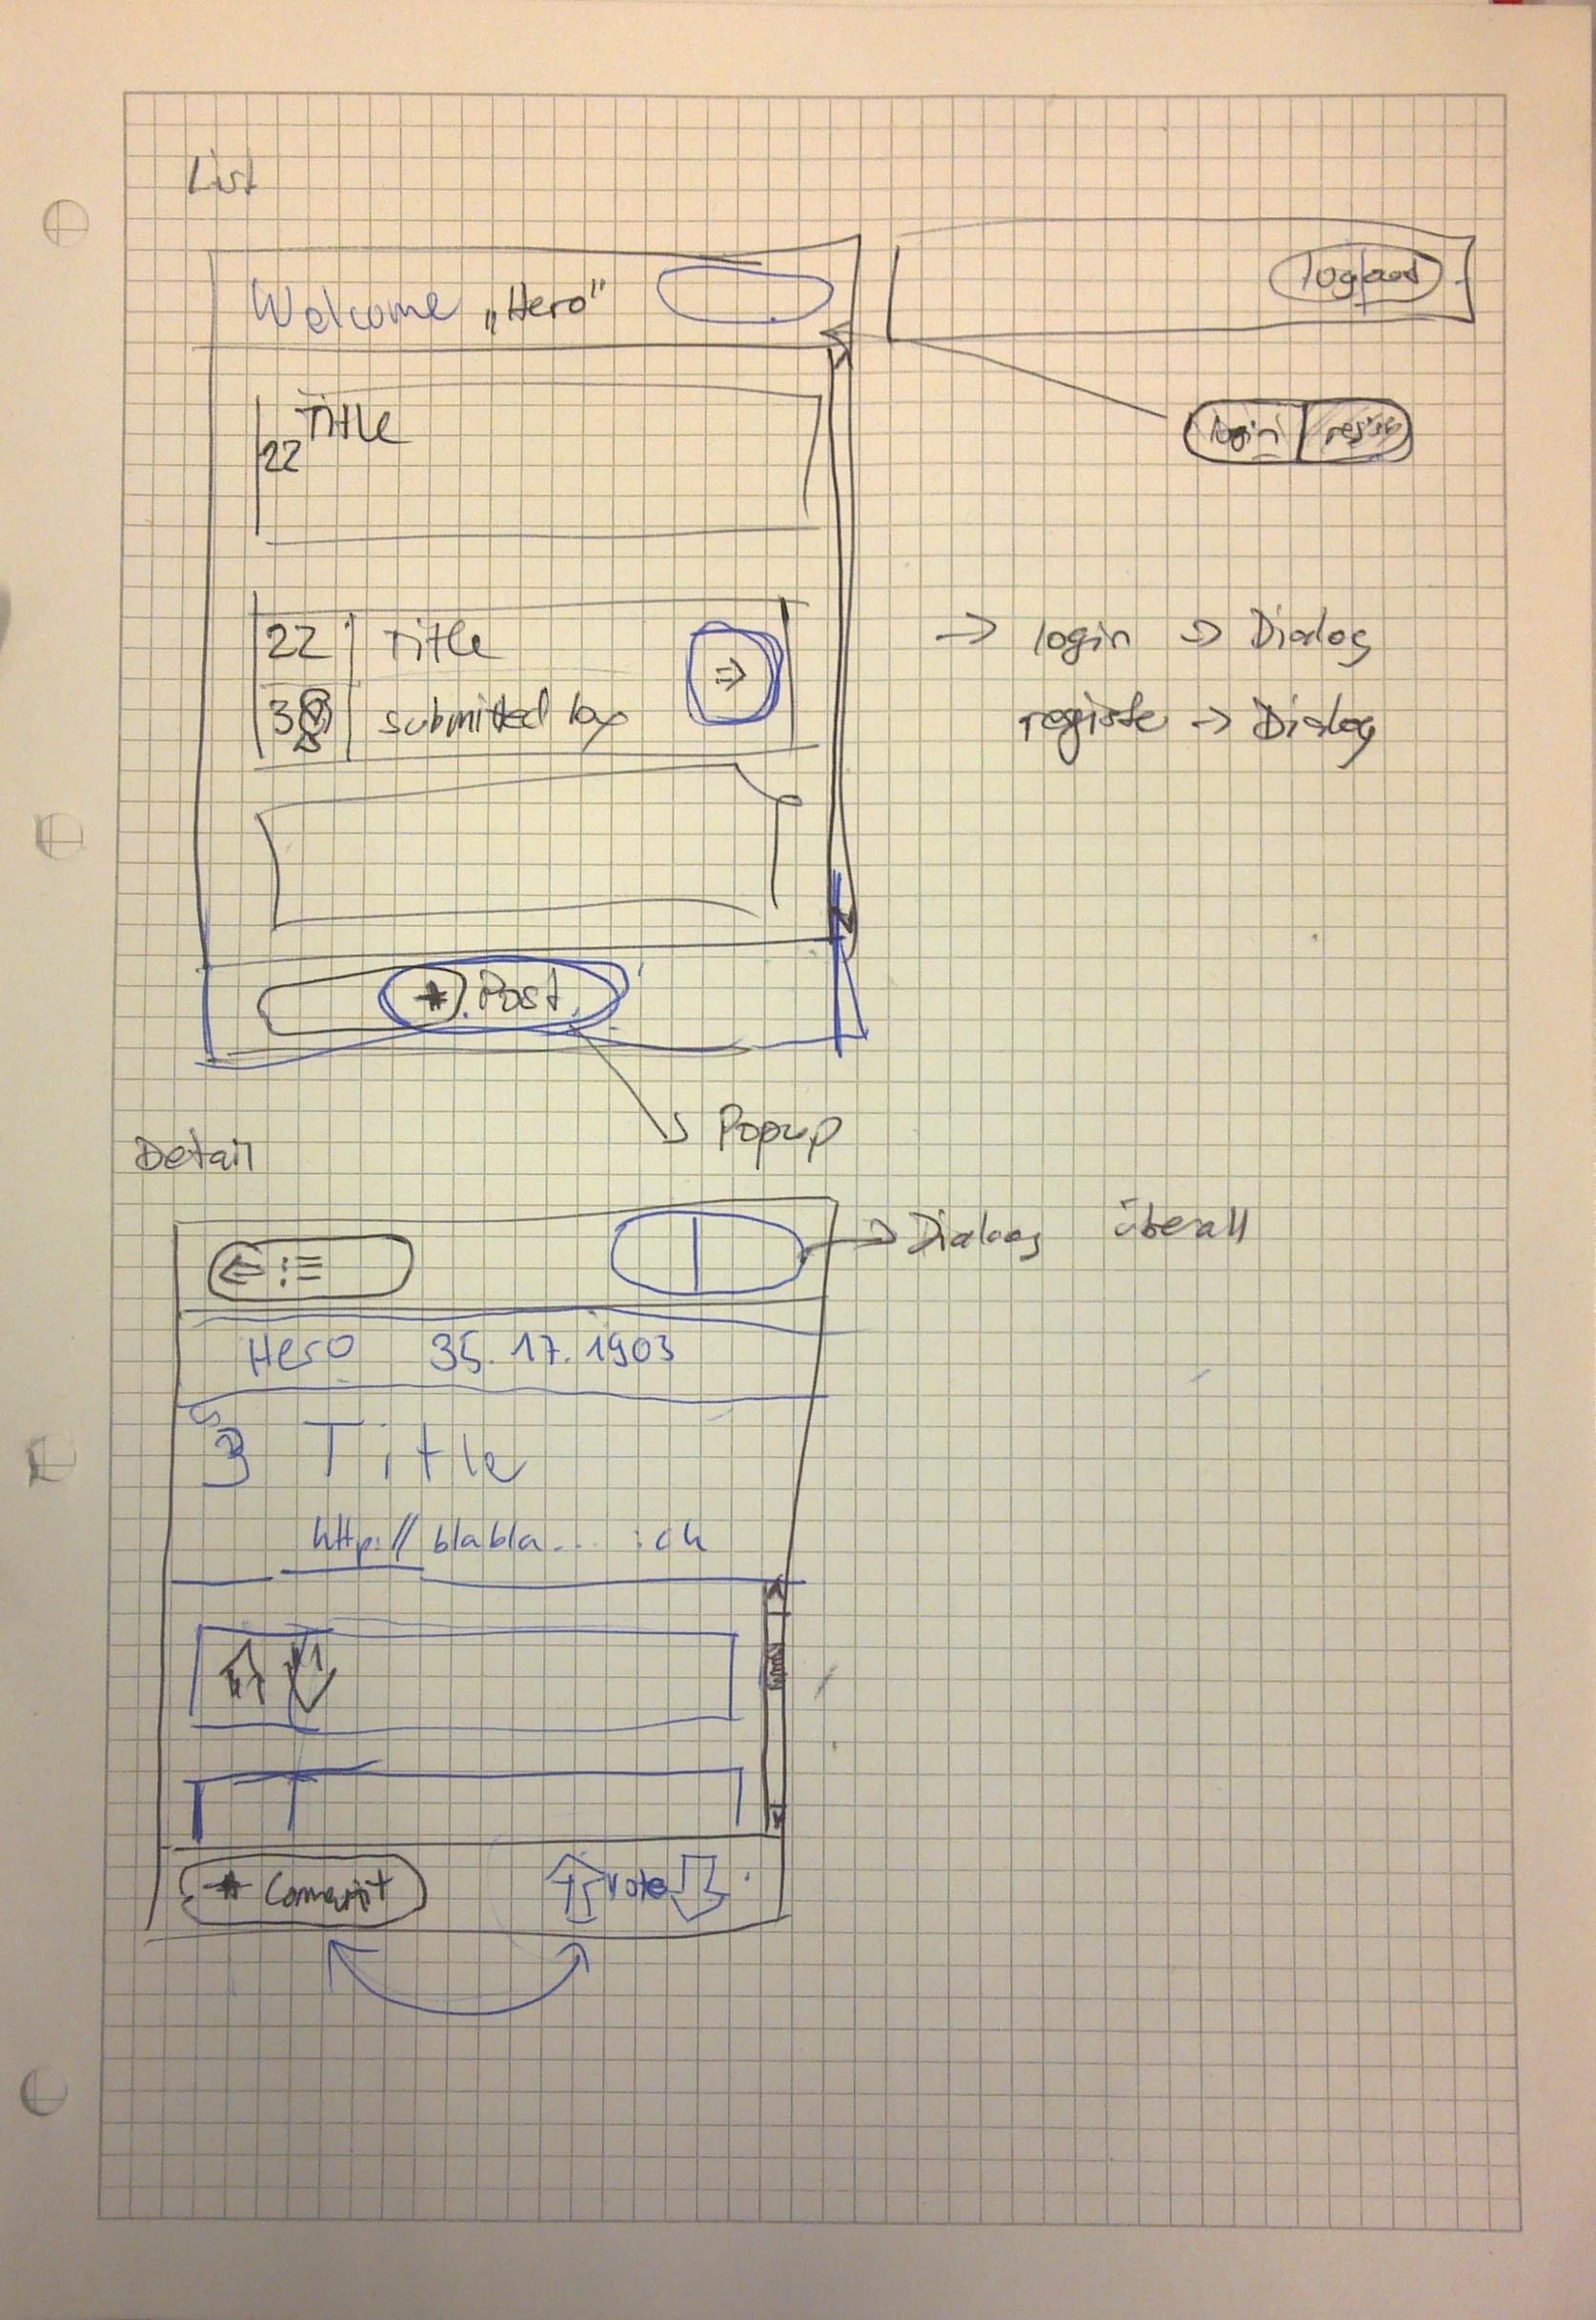 List
Welcome „Hero"
logout
Title
22
login regist
22 Title
⇒
3 submitted by
→ login → Dialog
registe → Dialog
* Post
Popup
Detail
Dialog überall
Hero 35.17.1903
3 Title
http:// blabla.... .ch
* Comment
vote